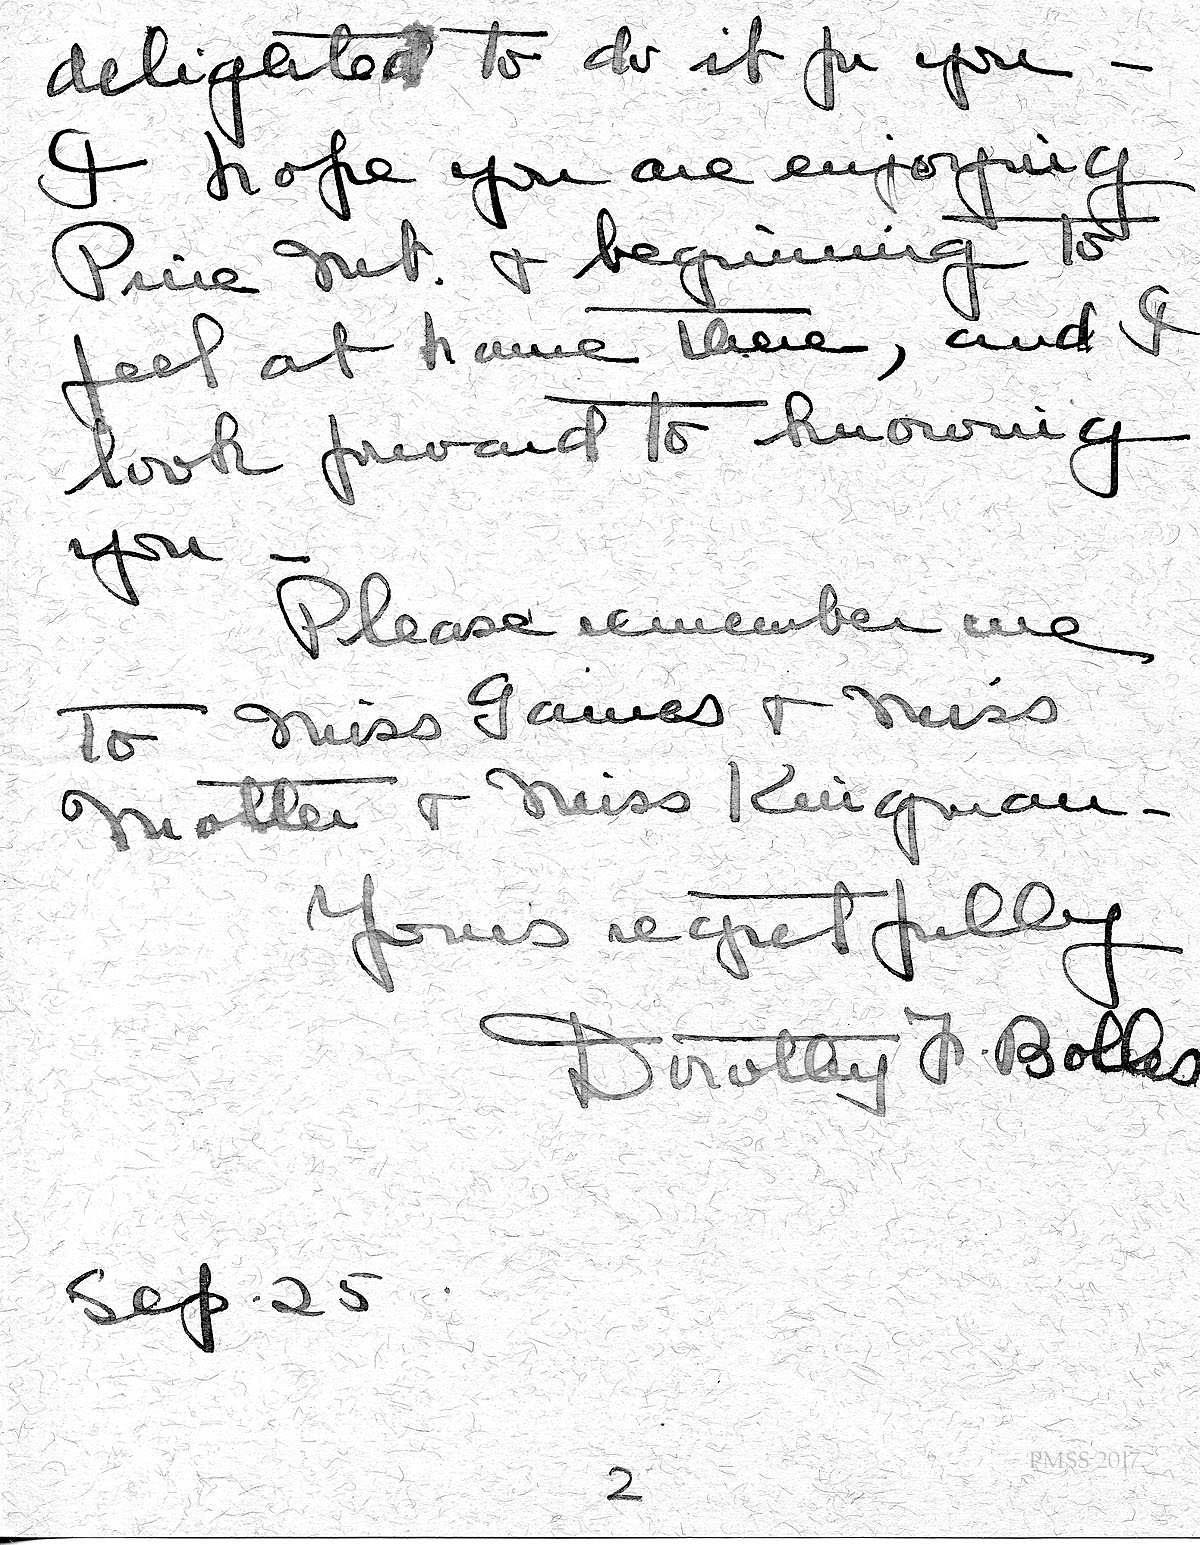 delighted to do it for you -
I hope you are enjoying
Pine Mt. & beginning to
feel at home there, and I
look forward to knowing
you -
Please remember me
to Miss Gaines & Miss
Motter & Miss Kingman -
Yours regretfully
Dorothy F. Bolles
Sep. 25
PMSS 2017
2